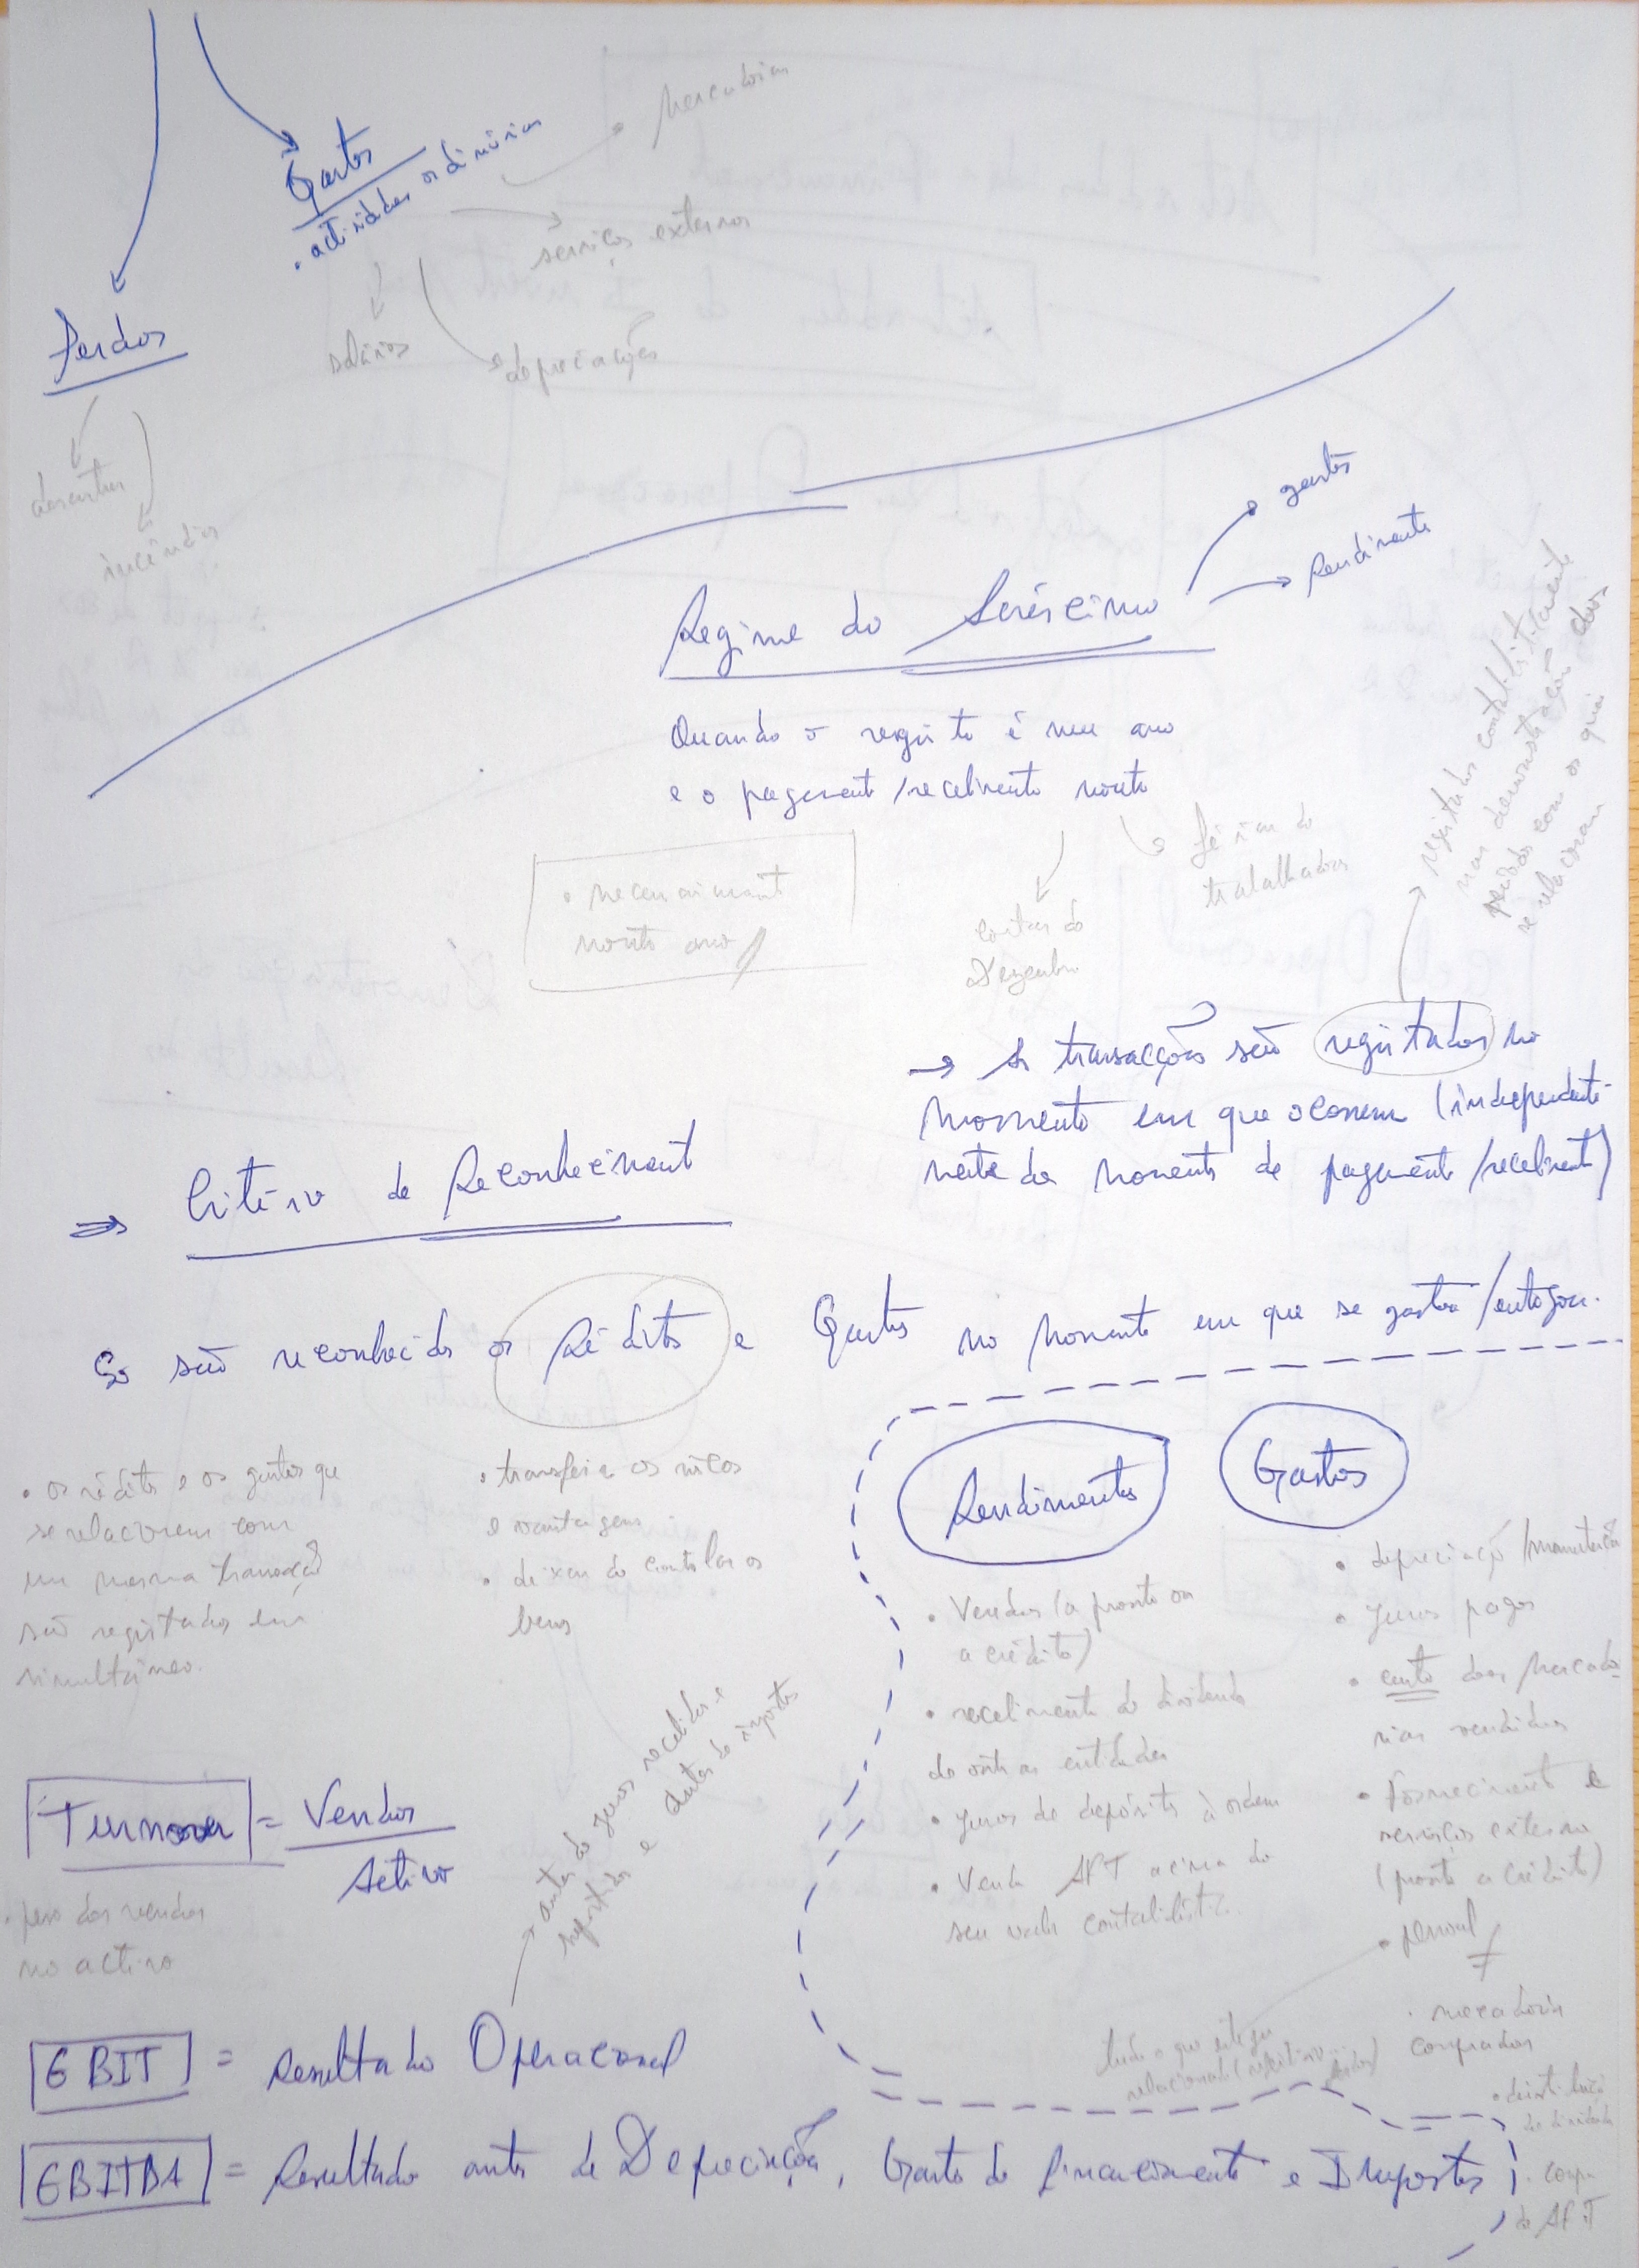 Gastos
. actividades ordinárias
Mercadorias
serviços externos
salários
depreciações
Perdas
incêndios
gastos
Rendimento
Regime do Acréscimo
Quando o registo é num ano
e o pagamento /recebimento noutro
. necessariamente
noutro ano
férias do
trabalhador
contas de
Dezembro
registados contabilisticamente
nas demonstrações dos
períodos com os quais
se relacionam
→ As transacções são registados no
momento em que ocorrem (independente-
mente do momento de pagamento /recebimento)
⇒ Critério de Reconhecimento
Só são reconhecidos os Réditos e Gastos no momento em que se gasta /entregou.
. os réditos e os gastos que
se relacionem com
uma mesma transação
são registados em
simultâneo.
. transferir os riscos
e vantagens
. deixou de controlar os
bens
Rendimentos
Gastos
. Vendas (a pronto ou
a crédito)
. recebimento de dividendos
de outras entidades
. juros de depósitos à ordem
. Venda AFT acima do
seu valor contabilístico.
. depreciação /
. juros pagos
. custo das mercado-
rias vendidas
. Fornecimento e
serviços externo
(pronto a crédito)
. pessoal
≠
. mercadoria
compradas
. distribuição
de dividendos
. compra
de AFT
tudo o que esteja
relacionado
Turnover = Vendas
Activo
. peso das vendas
no activo
antes de juros recebidos e
suportados e antes de impostos
EBIT = Resultado Operacional
EBITDA = Resultado antes de Depreciação, Gasto de financiamento e Impostos